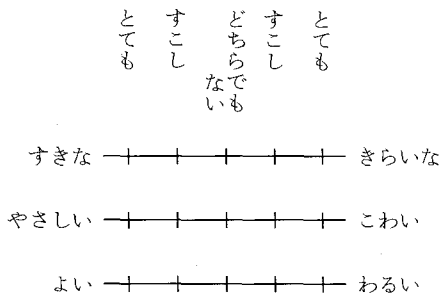 とても
すこし
どちらでも
ない
すこし
とても
すきな きらいな
やさしい こわい
よい わるい